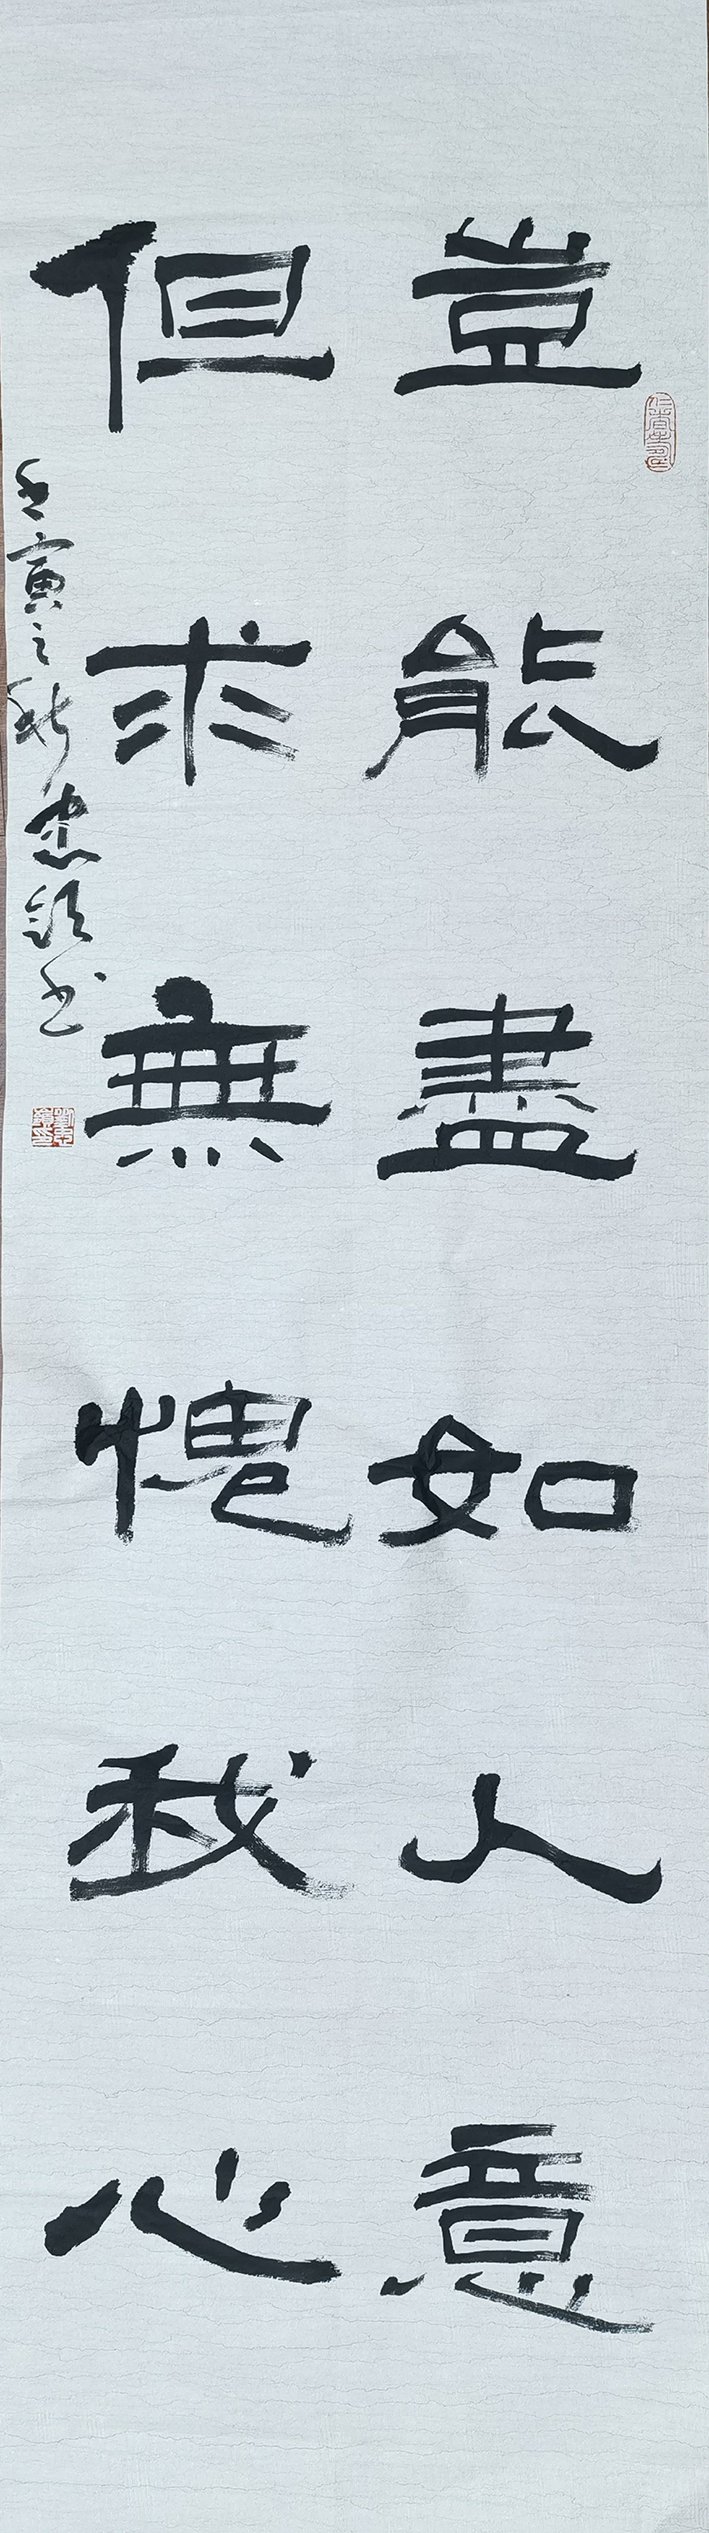 豈能盡如人意
但求無愧我心
壬寅之秋忠頌书